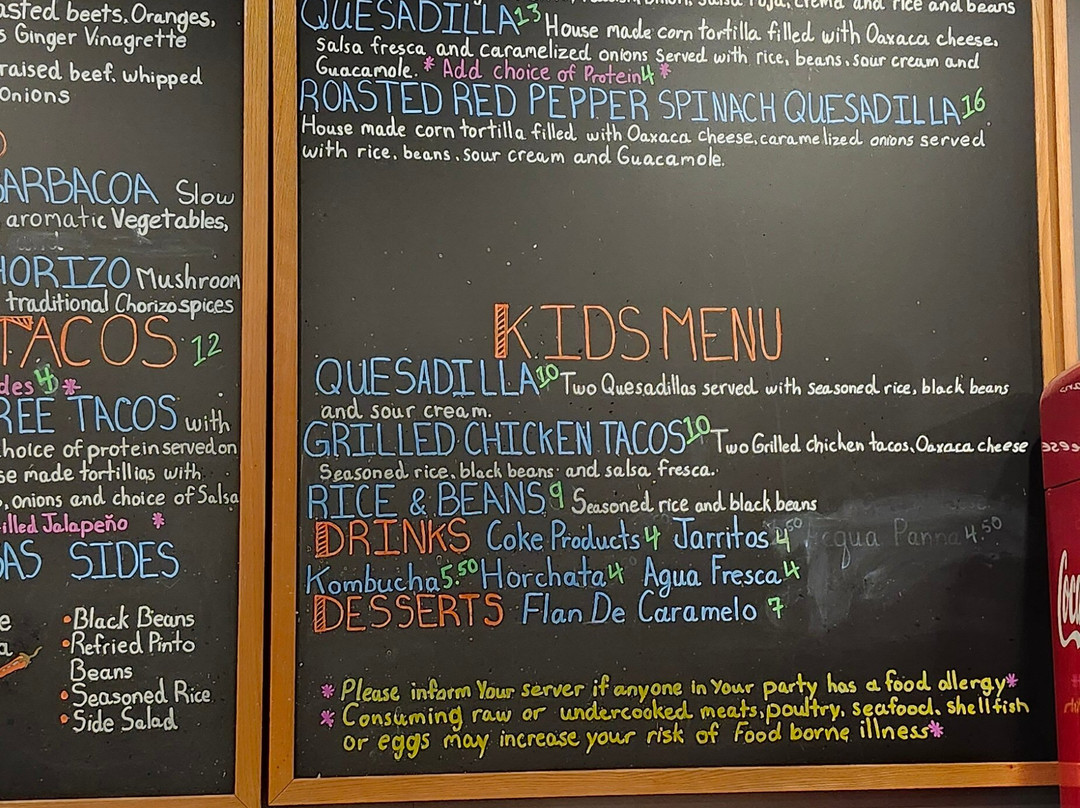 asted beets, Oranges,
s Ginger Vinagrette
raised beef, whipped
Onions
BARBACOA Slow
aromatic Vegetables,
HORIZO Mushroom
traditional Chorizo spices
TACOS 12
des 4 *
REE TACOS with
hoice of protein served on
se made tortillias with
, onions and choice of Salsa
illed Jalapeño *
AS SIDES
• Black Beans
• Refried Pinto
Beans
• Seasoned Rice
• Side Salad
crema and rice and beans
QUESADILLA 13 House made corn tortilla filled with Oaxaca cheese,
Salsa fresca, and caramelized onions served with rice, beans, sour cream and
Guacamole. * Add choice of Protein 4 *
ROASTED RED PEPPER SPINACH QUESADILLA 16
House made corn tortilla filled with Oaxaca cheese, caramelized onions served
with rice, beans, sour cream and Guacamole.
KIDS MENU
QUESADILLA 10 Two Quesadillas served with seasoned rice, black beans
and sour cream.
GRILLED CHICKEN TACOS 10 Two Grilled Chicken tacos, Oaxaca cheese
Seasoned rice, black beans and salsa fresca.
RICE & BEANS 9 Seasoned rice and black beans
DRINKS Coke Products 4 Jarritos 4.50 Acqua Panna 4.50
Kombucha 5.50 Horchata 4 Agua Fresca 4
DESSERTS Flan De Caramelo 7
* Please inform Your server if anyone in Your party has a food allergy *
* Consuming raw or undercooked meats, poultry, seafood, shellfish
or eggs may increase your risk of Food borne illness *